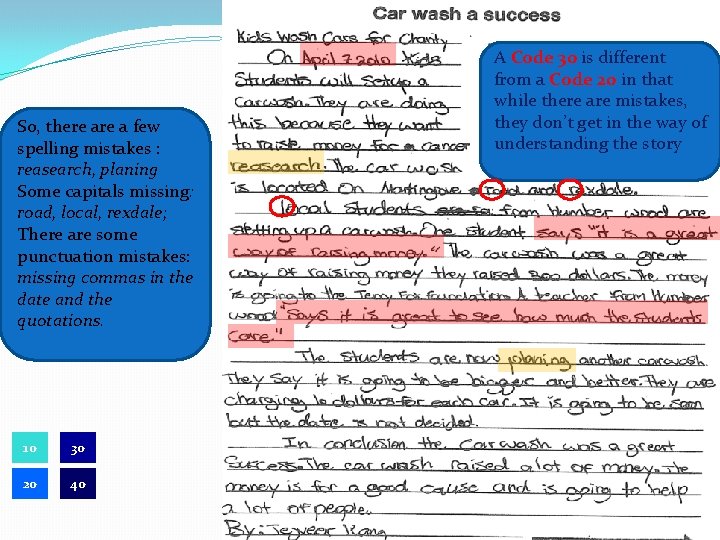 Car wash a success
Kids wash Cars for Charity
On April 7 2010 Kids
Students will setup a
carwash. They are doing
this because they want
to raise money for a cancer
reasearch. The car wash
is located On Martingrove road and rexdale.
local students from Humber wood are
setting up a carwash. One student says "it is a great
way of raising money." The carwash was a great
way of raising money they raised 500 dollars. The money
is going to the Terry Fox foundation. A teacher from Humber
wood "Says it is great to see how much the students
care."
The students are now planing another carwash.
They say it is going to be bigger and better. They are
charging 10 dollars for each car. It is going to be soon
but the date is not decided.
In conclusion the car wash was a great
Success. The car wash raised a lot of money. The
money is for a good cause and is going to help
a lot of people.
By: Tegveer Kang
A Code 30 is different
from a Code 20 in that
while there are mistakes,
they don't get in the way of
understanding the story
So, there are a few
spelling mistakes :
reasearch, planing
Some capitals missing:
road, local, rexdale;
There are some
punctuation mistakes:
missing commas in the
date and the
quotations.
10
30
20
40